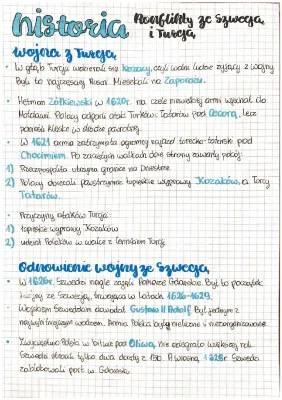 historia
Konflikty ze Szwecją
i Turcją
wojna z Turcją
• W głąb Turcji wdzierali się Kozacy, czyli wolni ludzie żyjący z wojny.
Byli to najczęściej Rusini. Mieszkali na Zaporożu.
• Hetman Żółkiewski w 1620r. na czele niewielkiej armii wjechał do
Mołdawii. Polacy odparli ataki Turków i Tatarów pod Cecorą, lecz
ponieśli klęskę w drodze powrotnej.
• W 1621 armia zatrzymała ogromny najazd turecko-tatarski pod
Chocimiem. Po zaciętych walkach obie strony zawarły pokój:
1) Rzeczpospolita utrzyma granicę na Dniestrze.
2) Polacy powstrzymać łupieskie wyprawy Kozaków, a Turcy
Tatarów.
• Przyczyny ataków Turcji:
1) łupieskie wyprawy Kozaków
2) udział Polaków w walce z Turcją
Odnowienie wojny ze Szwecją
• W 1626r. Szwedzi nagle zajęli Pomorze Gdańskie. Był to początek
wojny ze Szwecją, trwająca w latach 1626-1629.
Wojskiem Szwedzkim dowodził Gustaw II Adolf. Był jednym z
najwybitniejszych wodzów. Armia Polska była nieliczna i niezorganizowana.
• Zwycięstwo Polski w bitwie pod Oliwą, nie odegrało większej roli.
Szwedzi stracili tylko dwa okręty z 150. A wiosną 1628r Szwedzi
zablokowali port w Gdańsku.